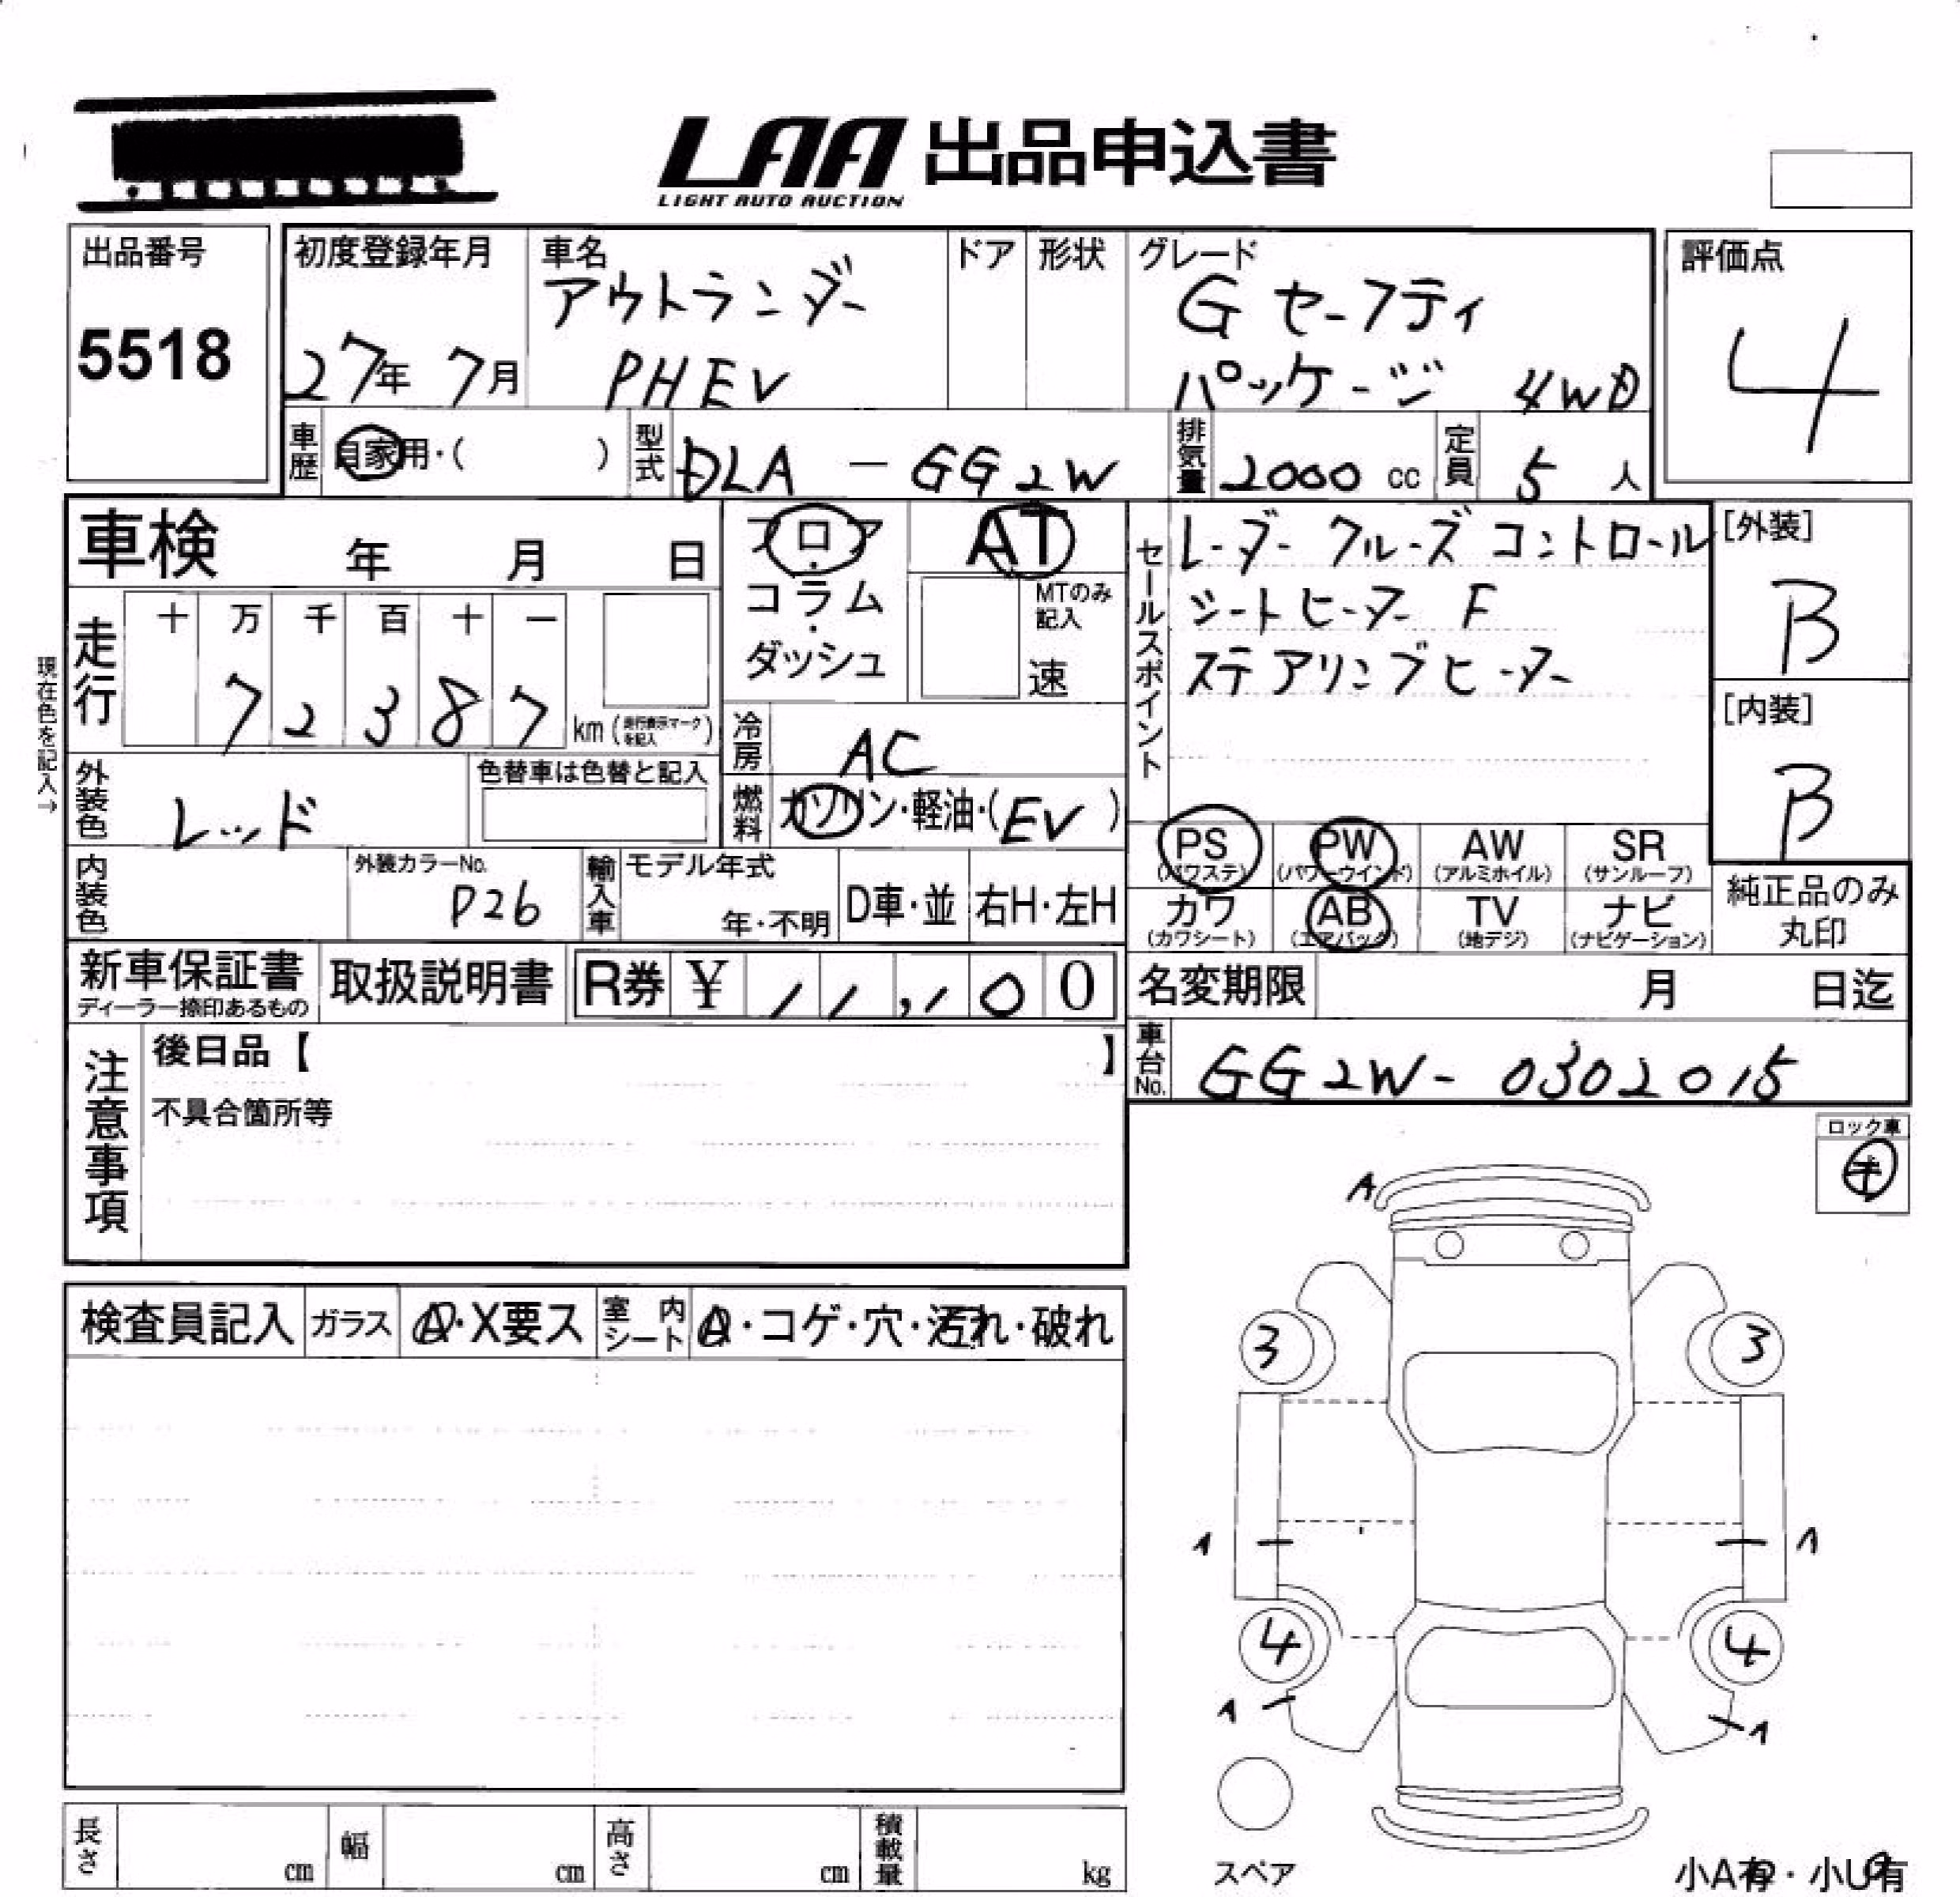 LAA 出品申込書
LIGHT AUTO AUCTION
出品番号
5518
初度登録年月
27年 7月
車名
アウトランダー
PHEV
ドア
形状
グレード
G セーフティ
パッケージ 4WD
評価点
4
車歴
自家用・( )
型式
DLA - GG2W
排気量
2000 cc
定員
5 人
車検 年 月 日
フロア・
コラム・
ダッシュ
AT
MTのみ
記入
速
セールスポイント
レーダー クルーズ コントロール
シートヒーター F
ステアリングヒーター
[外装]
B
[内装]
B
現在色を記入→
走行
十 万 千 百 十 一
7 2 3 8 7
km (走行表示マークを記入)
冷房
AC
燃料
ガソリン・軽油・(EV)
外装色
レッド
色替車は色替と記入
内装色
外装カラーNo.
P26
輸入車
モデル年式
年・不明
D車・並
右H・左H
PS
(パワステ)
PW
(パワーウインド)
AW
(アルミホイル)
SR
(サンルーフ)
カワ
(カワシート)
AB
(エアバック)
TV
(地デジ)
ナビ
(ナビゲーション)
純正品のみ
丸印
新車保証書
ディーラー捺印あるもの
取扱説明書
R券 ¥ 11,100
名変期限 月 日迄
注意事項
後日品【 】
不具合箇所等
車台No.
GG2W- 0302015
ロック車
検査員記入
ガラス
A・X要ス
室内
シート
・コゲ・穴・汚れ・破れ
A
3
3
1
1
4
4
1
1
スペア
小A有・小U有
長さ cm
幅 cm
高さ cm
積載量 kg